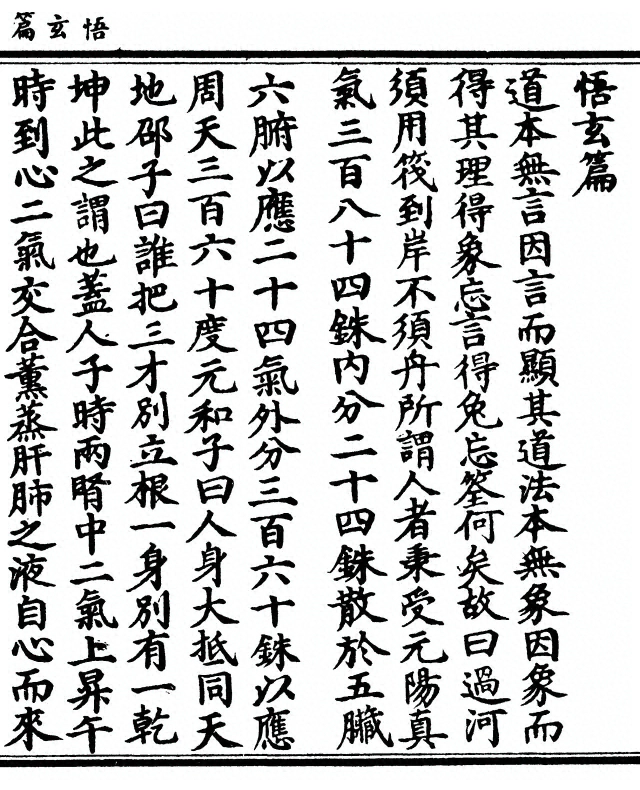 悟玄篇
悟玄篇
道本無言因言而顯其道法本無象因象而
得其理得象忘言得兔忘筌何矣故曰過河
須用筏到岸不須舟所謂人者秉受元陽真
氣三百八十四銖内分二十四銖散於五臟
六腑以應二十四氣外分三百六十銖以應
周天三百六十度元和子曰人身大抵同天
地邵子曰誰把三才別立根一身別有一乾
坤此之謂也蓋人子時兩腎中二氣上昇午
時到心二氣交合薰蒸肝肺之液自心而來